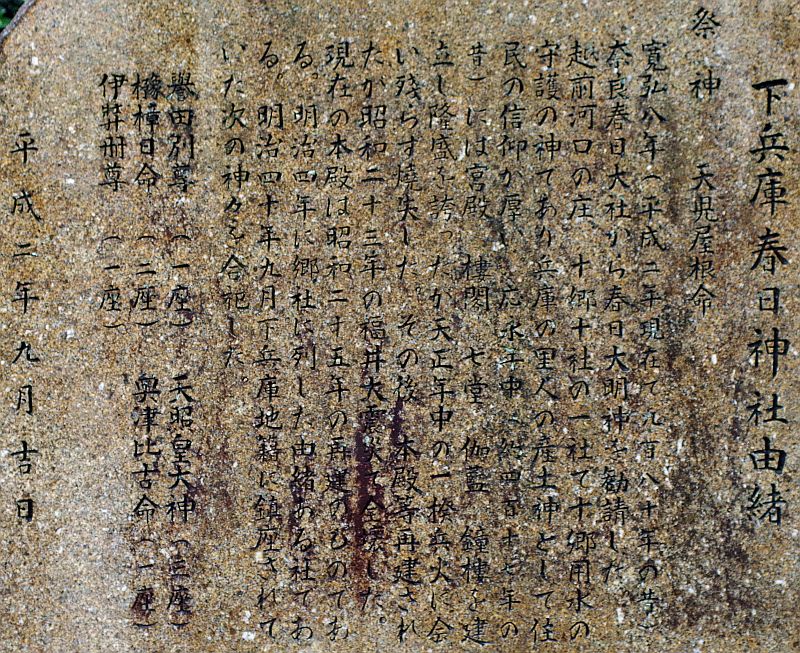 下兵庫春日神社由緒
祭神　天児屋根命
寛弘八年（平成二年現在で九百八十年の昔）
奈良春日大社から春日大明神を勧請した。
越前河口の庄、十郷十社の一社で十郷用水の
守護の神であり兵庫の里人の産土神として住
民の信仰が厚い　応永年中（約四百十七年の
昔）には宮殿　楼閣　七堂　伽藍　鐘樓を建
立し隆盛を誇ったが天正年中の一揆兵火に余
い残らす焼失した。その後　本殿等再建され
たが昭和二十三年の福井大震災で全壊した。
現在の本殿は昭和二十五年の再建のものであ
る。明治四年に郷社に列した由緒ある社であ
る。明治四十年九月下兵庫地籍に鎮座されて
いた次の神々を合祀した。
誉田別尊　（一座）　天照皇大神（三座）
櫲樟日命　（二座）　奥津比古命（一座）
伊弉冊尊　（一座）
平成二年九月吉日